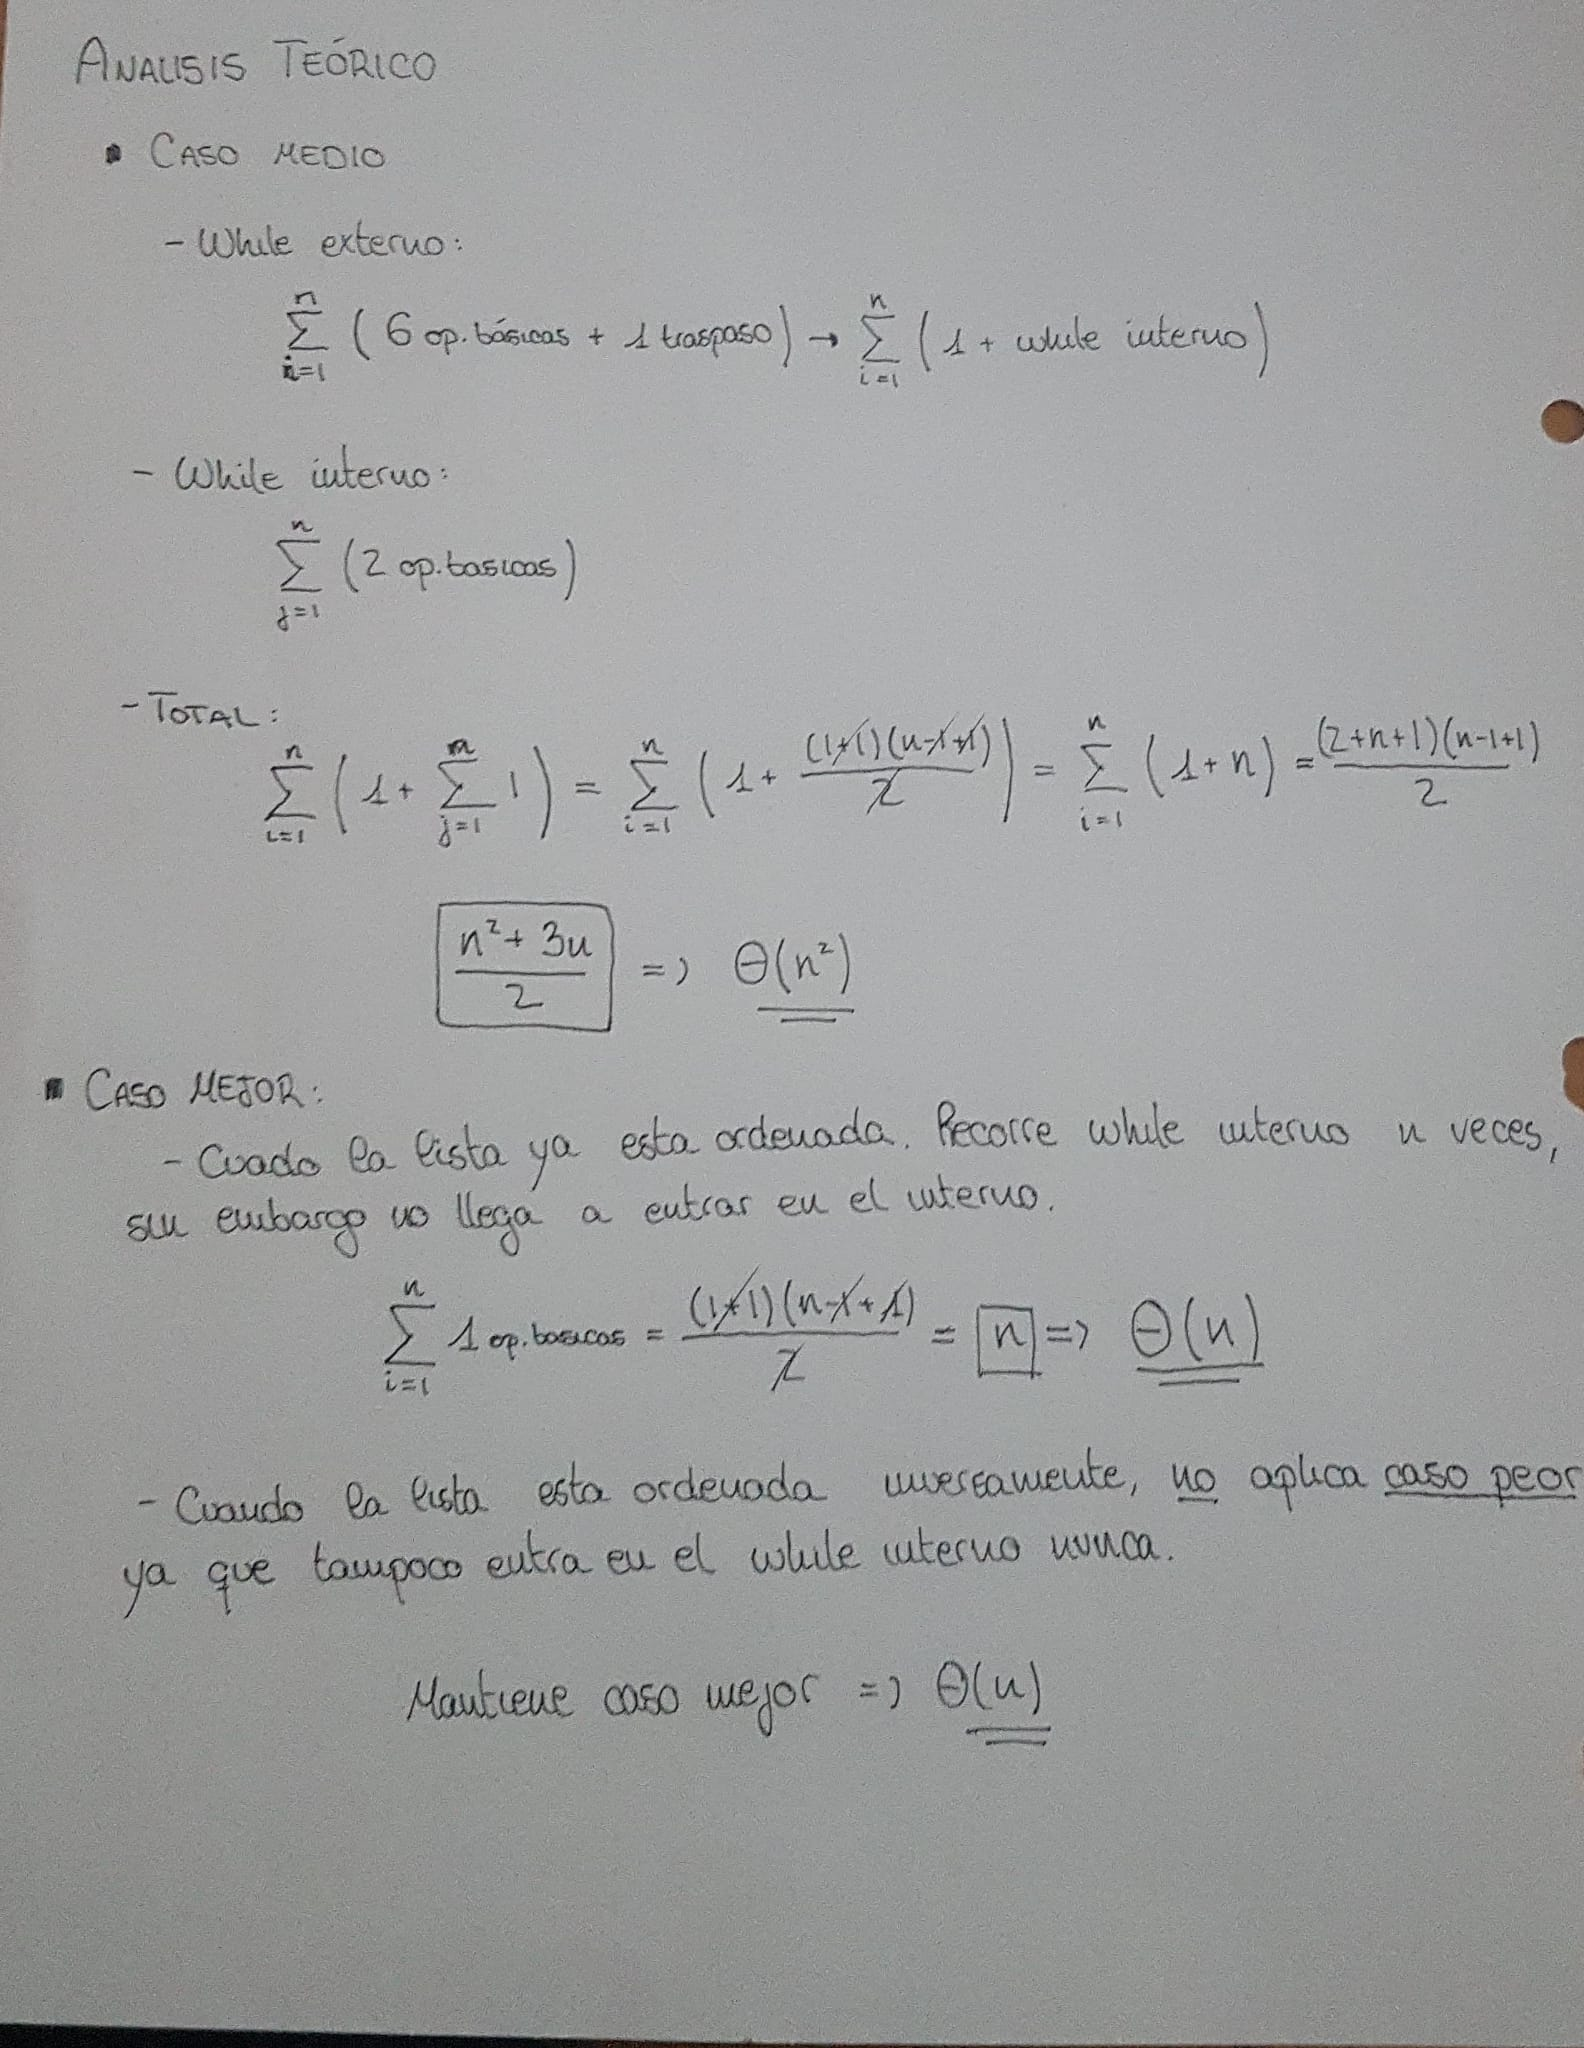 ANALISIS TEÓRICO
▪ CASO MEDIO
- While externo:
n∑i=1 (6 op. básicas + 1 traspaso) → n∑i=1 (1 + while interno)
- While interno:
n∑j=1 (2 op. basicas)
- TOTAL:
n∑i=1 (1 + n∑j=1 1) = n∑i=1 (1 + (1+1)(n-1+1)/2) = n∑i=1 (1+n) = (2+n+1)(n-1+1)/2
(n² + 3n)/2 => Θ(n²)
▪ CASO MEJOR:
- Cuado la lista ya esta ordenada. Recorre while interno n veces,
sin embargo no llega a entrar en el interno.
n∑i=1 1 op. basicas = (1+1)(n-1+1)/2 = n => Θ(n)
- Cuando la lista esta ordenada inversamente, no aplica caso peor
ya que tampoco entra en el while interno nunca.
Mantiene caso mejor => Θ(n)